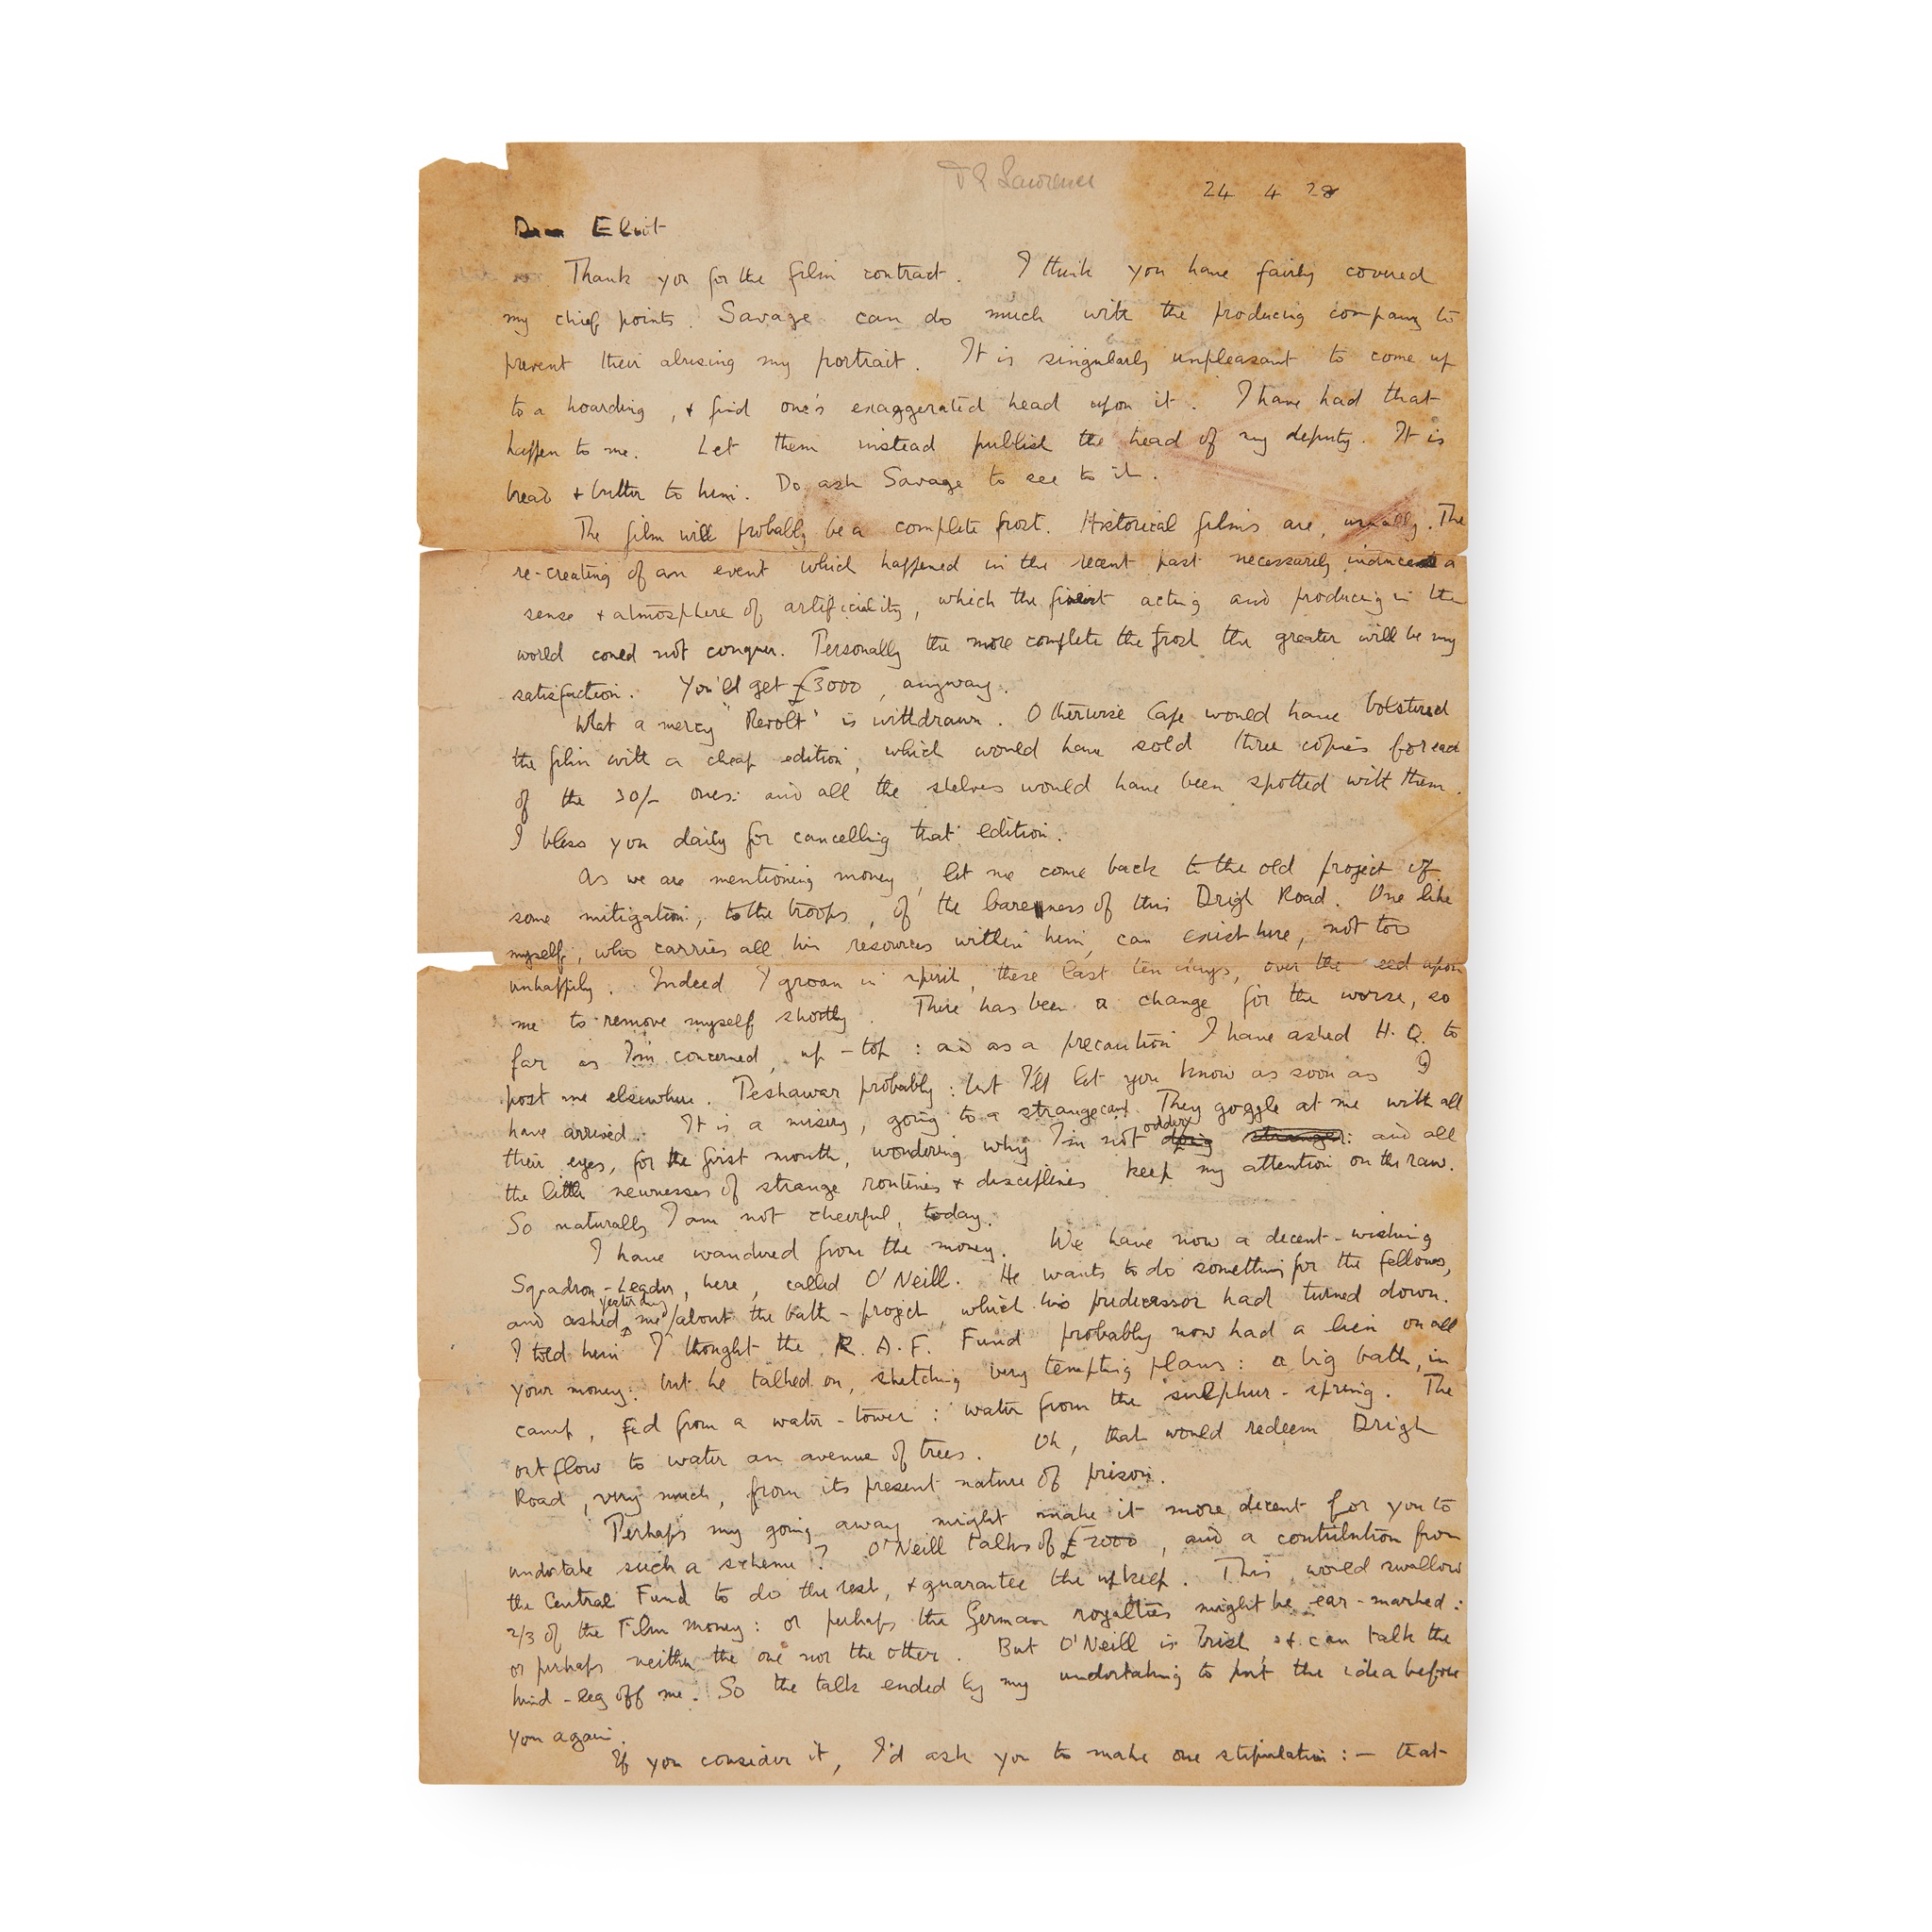 T E Lawrence
24 4 28
Dear Eliot
Thank you for the film contract. I think you have fairly covered
my chief points. Savage can do much with the producing company to
prevent their abusing my portrait. It is singularly unpleasant to come up
to a hoarding, & find one's exaggerated head upon it. I have had that
happen to me. Let them instead publish the head of my deputy. It is
bread & butter to him. Do ask Savage to see to it.
The film will probably be a complete frost. Historical films are, usually. The
re-creating of an event which happened in the recent past necessarily induces a
sense & atmosphere of artificiality, which the finest acting and producing in the
world could not conquer. Personally the more complete the frost the greater will be my
satisfaction. You'll get £3000, anyway.
What a mercy "Revolt" is withdrawn. Otherwise Cape would have bolstered
the film with a cheap edition, which would have sold three copies for each
of the 30/- ones: and all the shelves would have been spotted with them.
I bless you daily for cancelling that edition.
As we are mentioning money, let me come back to the old project of
some mitigation, to the troops, of the bareness of this Drigh Road. One like
myself, who carries all his resources within him, can exist here, not too
unhappily. Indeed I groan in spirit, these last ten days, over the need upon
me to remove myself shortly. There has been a change for the worse, so
far as I'm concerned, up-top: and as a precaution I have asked H.Q. to
post me elsewhere. Peshawar probably: but I'll let you know as soon as I
have arrived. It is a misery, going to a strange camp. They goggle at me with all
their eyes, for the first month, wondering why I'm not odder: and all
the little newnesses of strange routines & disciplines keep my attention on the raw.
So naturally I am not cheerful, today.
I have wandered from the money. We have now a decent-wishing
Squadron-Leader, here, called O'Neill. He wants to do something for the fellows,
and asked me yesterday about the bath-project, which his predecessor had turned down.
I told him I thought the R.A.F. Fund probably now had a lien on all
your money: but he talked on, sketching very tempting plans: a big bath, in
camp, fed from a water-tower: water from the sulphur-spring. The
outflow to water an avenue of trees. Oh, that would redeem Drigh
Road, very much, from its present nature of prison.
Perhaps my going away might make it more decent for you to
undertake such a scheme? O'Neill talks of £2000, and a contribution from
the Central Fund to do the rest, & guarantee the upkeep. This would swallow
2/3 of the Film money: or perhaps the German royalties might be ear-marked:
or perhaps neither the one nor the other. But O'Neill is Irish & can talk the
hind-leg off me. So the talk ended by my undertaking to put the idea before
you again.
If you consider it, I'd ask you to make one stipulation:— that